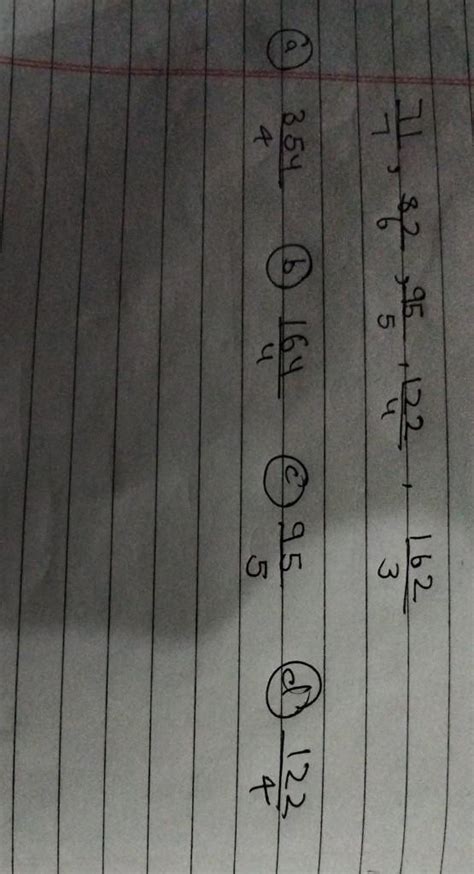 71/7, 82/6, 95/5, 122/4, 162/3
(a) 354/4 (b) 164/4 (c) 95/5 (d) 122/4